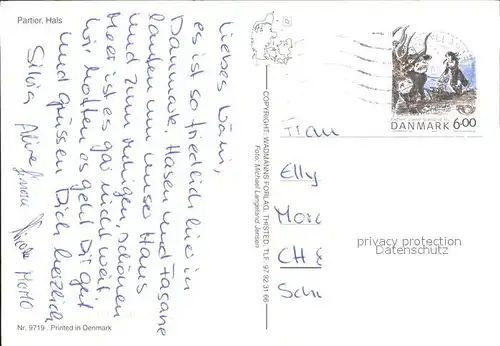 Partier, Hals
Liebes Väni,
es ist so friedlich hier in
Dänmark. Hasen und Fasane
laufen um unser Haus
und zum ruhigen, schönen
Meer ist es gar nicht weit.
Wir hoffen es geht Dir gut
und grüssen Dich herzlich
Silvia
MOMO
Nr. 9719 Printed in Denmark
COPYRIGHT: WADMANNS FORLAG, THISTED. TLF. 97 92 31 66
Foto: Michael Langeland Jensen
DANMARK 6.00
Elly
CH
privacy protection
Datenschutz